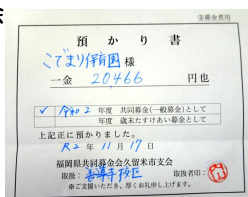 ③募金者用
預かり書
こでまり保育園様
一金 20466 円也
✓ 令和2年度 共同募金(一般募金)として
年度 歳末たすけあい募金として
上記正に預かりました。
R2年11月17日
福岡県共同募金会久留米市支会
取扱:善導寺校区 取扱者印:
※ご支援いただき、厚くお礼申し上げます。